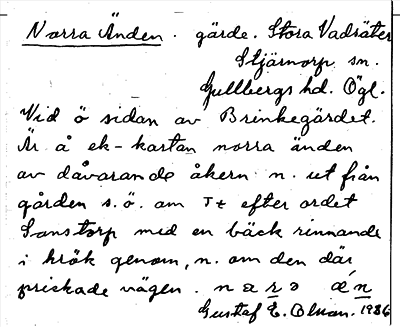 Norra Änden. gärde. Stora Vadsäter
Stjärnorp sn.
Gullbergs hd. Ögl.
Vid ö sidan av Brinkegärdet.
Är å ek-kartan norra änden
av dåvarande åkern n. ut från
gården s.ö. om Tt efter ordet
Sanstorp med en bäck rinnande
i krök genom, n. om den där
prickade vägen. nara än
Gustaf E. Olsson. 1936